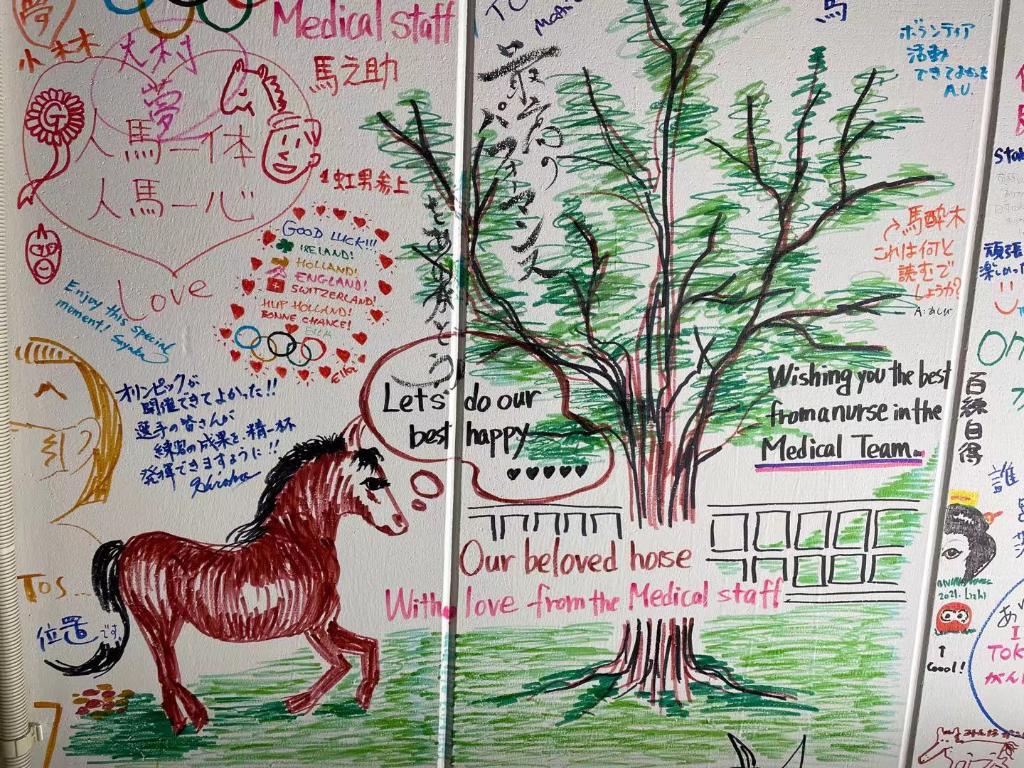 夢
小林
大村
夢
人馬一体
人馬一心
Love
Medical staff
馬之助
虹男参上
GOOD LUCK!!!
IRELAND!
HOLLAND!
ENGLAND!
SWITZERLAND!
HUP HOLLAND!
BONNE CHANCE!
Enjoy this special
moment!
オリンピックが
開催できてよかった!!
選手の皆さんが
練習の成果を精一杯
発揮できますように!!
最高の
パフォーマンス
をありがとう
馬
ボランティア
活動
できてよかった
A.U.
馬酔木
これは何と
読むで
しょうか?
A:あしび
Let's do our
best happy
Wishing you the best
from a nurse in the
Medical Team.
Our beloved horse
With love from the Medical staff
TOS...
位置です
百練自得
誰
頑張
楽しかった
2021. Lizhi
↑
Coool!
あ
I
TOK
がん
7